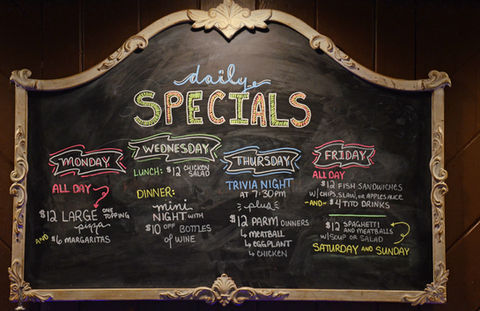 daily
SPECIALS
MONDAY
ALL DAY
$12 LARGE ONE TOPPING
pizza
AND $6 MARGARITAS
WEDNESDAY
LUNCH: $12 CHICKEN SALAD
DINNER:
mini
NIGHT WITH
$10 OFF BOTTLES
OF WINE
THURSDAY
TRIVIA NIGHT
AT 7:30PM
plus
$12 PARM DINNERS
MEATBALL
EGGPLANT
CHICKEN
FRIDAY
ALL DAY
$12 FISH SANDWICHES
W/ CHIPS, SLAW, OR APPLESAUCE
-AND- $4 TITO DRINKS
$12 SPAGHETTI AND MEATBALLS
W/SOUP OR SALAD
SATURDAY AND SUNDAY